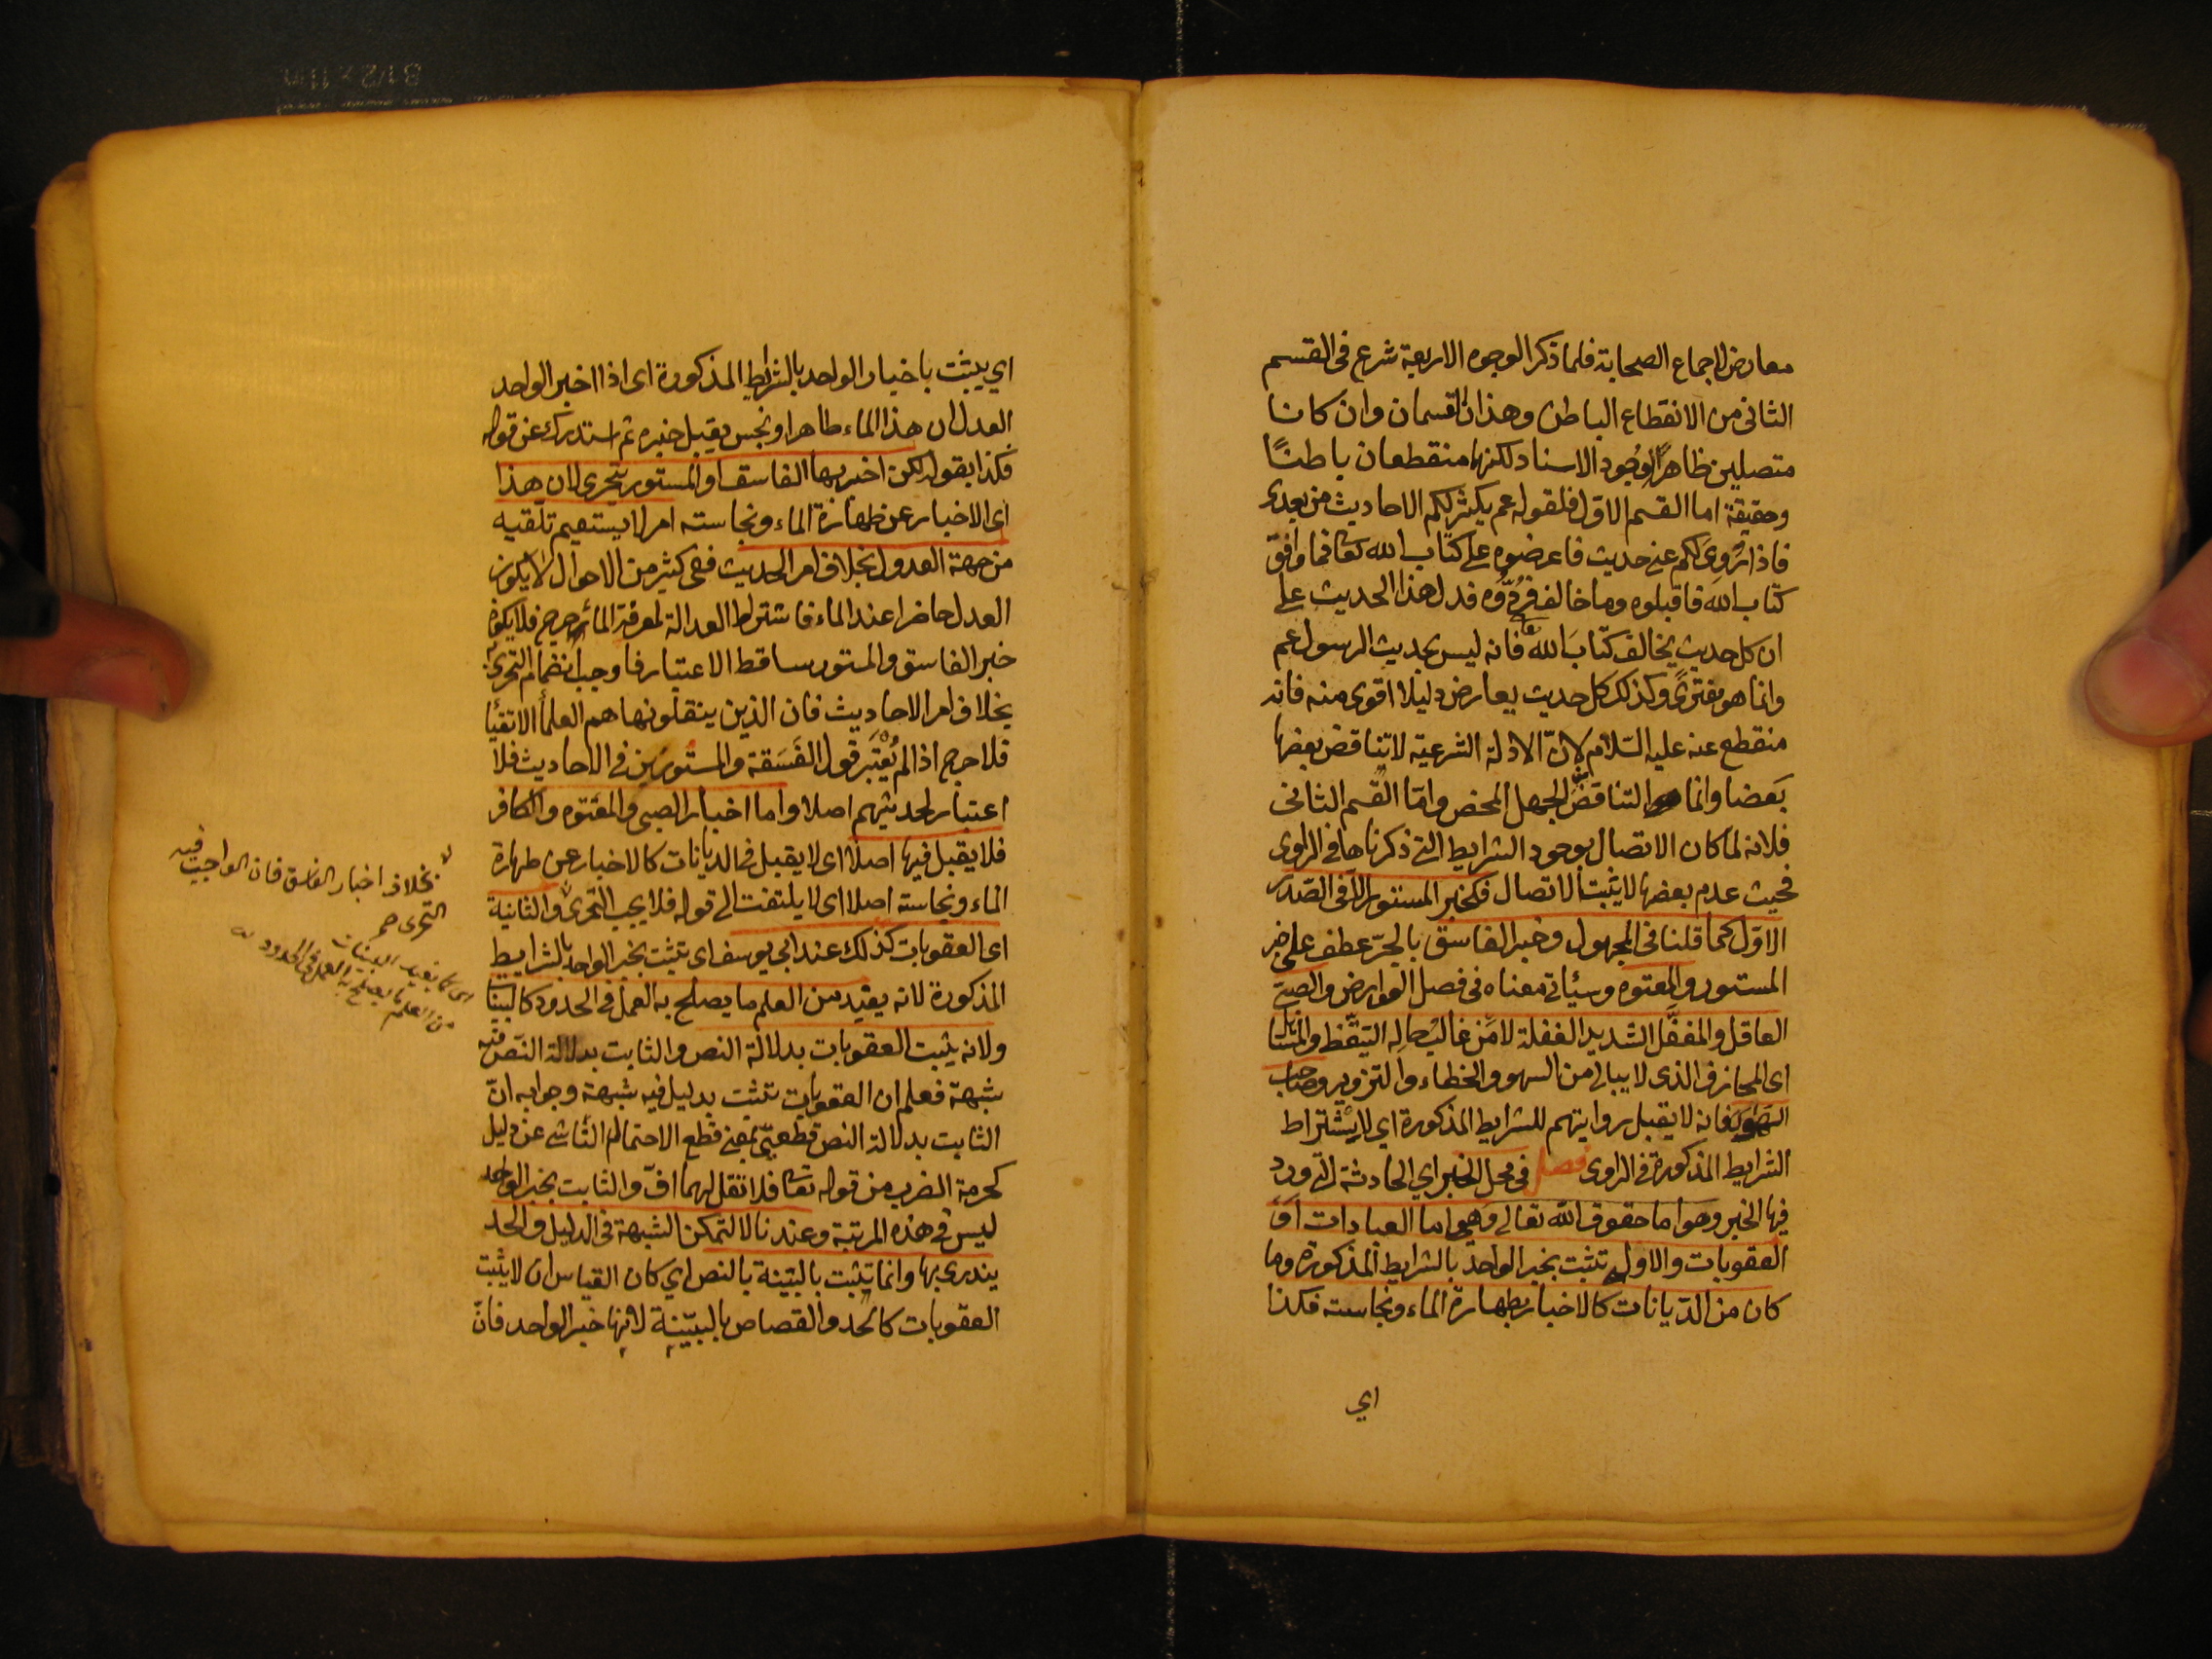 معارض لاجماع الصحابة فلما ذكر الوجوه الاربعة شرع فى القسم
الثانى من الانقطاع الباطن وهذان القسمان وان كانا
متصلين ظاهرًا لوجود الاسناد لكنهما منقطعان باطنًا
وحقيقة اما القسم الاول فلقوله عم يكثر لكم الاحاديث من بعدى
فاذا رُوِىَ لكم عنى حديث فاعرضوه على كتاب الله تعا فما وافق
كتاب الله فاقبلوه وما خالف فردّوه فدل هذا الحديث على
ان كل حديث يخالف كتابَ الله فانه ليس بحديث الرسول عم
وانما هو مفترىً وكذلك كل حديث يعارض دليلا اقوى منه فانه
منقطع عنه عليه السّلام لانّ الادلة الشرعيّة لا تناقض بعضها
بَعضا وانما التناقض الجهل المحض وامّا القسم الثانى
فلانه لما كان الاتصال بوجود الشرايط التى ذكرناها فى الراوى
فحيث عدم بعضها لا يثبت الاتصال فكخبر المستور الّا فى الصّدر
الاوّل كما قلنا فى المجهول وخبر الفاسق بالجرّ عطف على خبر
المستور والمعتوه وسيأتى معناه فى فصل العوارض والصبىّ
العاقل والمغفّل الشديد الغفلة لا مَن غالبُ حاله التيقّظ والمتساهل
اى المجازف الذى لا يبالى من السهو والخطاء والتزوير وصاحب
الهوى فانه لا يقبل روايتهم للشرايط المذكورة اي لاشتراط
الشرايط المذكورة فى الراوى فصل فى محل الخبر اي الحادثة التى ورد
فيها الخبر وهو اما حقوق الله تعالى وهى اما العبادات او
العقوبات والاول تثبت بخبر الواحد بالشرايط المذكورة وما
كان من الدّيانات كالاخبار بطهارة الماء ونجاسته فكذا
اي
اي يثبت باخبار الواحد بالشرايط المذكورة اى اذا اخبر الواحد
العدل ان هذا الماء طاهر او نجس يقبل خبره ثم استدرك عن قوله
فكذا بقوله لكن اخبر بها الفاسق او المستور يتحرى لان هذا
اى الاخبار عن طهارة الماء ونجاسته امر لا يستقيم تلقيه
من جهة العدول بخلاف امر الحديث ففى كثير من الاحوال لا يكون
العدل حاضرا عند الماء فاشتراط العدالة لمعرفة الماء حرج فلا يكون
خبر الفاسق والمستور ساقط الاعتبار فاوجب انضمام التحرى به
بخلاف امر الاحاديث فان الذين ينقلونها هم العلماً الاتقيا
فلا حرج اذا لم يُعْتَبَر قول الفَسَقة والمستورين فى الاحاديث فلا
اعتبار لحديثهم اصلا واما اخبار الصبى والمعتوه والكافر
فلا يقبل فيها اصلًا اى لا يقبل فى الديانات كالاخبار عن طهارة
الماء ونجاسته اصلا اى لا يلتفت الى قوله فلا يجب التحرى والثانية
اى العقوبات كذلك عند ابى يوسف اى تثبت بخبر الواحد بالشرايط
المذكورة لانه يفيد من العلم ما يصلح به العمل فى الحدود كالبينات
ولانه يثبت العقوبات بدلالة النص والثابت بدلالة النّص فيه
شبهة فعلم ان العقوبات تثبت بدليل فيه شبهة وجوابه انّ
الثابت بدلالة النص قطعىّ بمعنى قطع الاحتمال الناشى عن دليل
كحرمة الضرب من قوله تعا فلا تقل لهما افّ والثابت بخبر الواحد
ليس فى هذه المرتبة وعندنا لا لتمكن الشبهة فى الدليل والحد
يندرى بها وانما تثبت بالبيّنة بالنص اي كان القياس ان لا يثبت
العقوبات كالحد والقصاص بالبيّنة لانها خبر الواحد فانّ
بخلاف اخبار الفاسق فان الواجب فيه
التحرى
اى كما يفيد البينات
من العلم ما يصلح به العمل فى الحدود